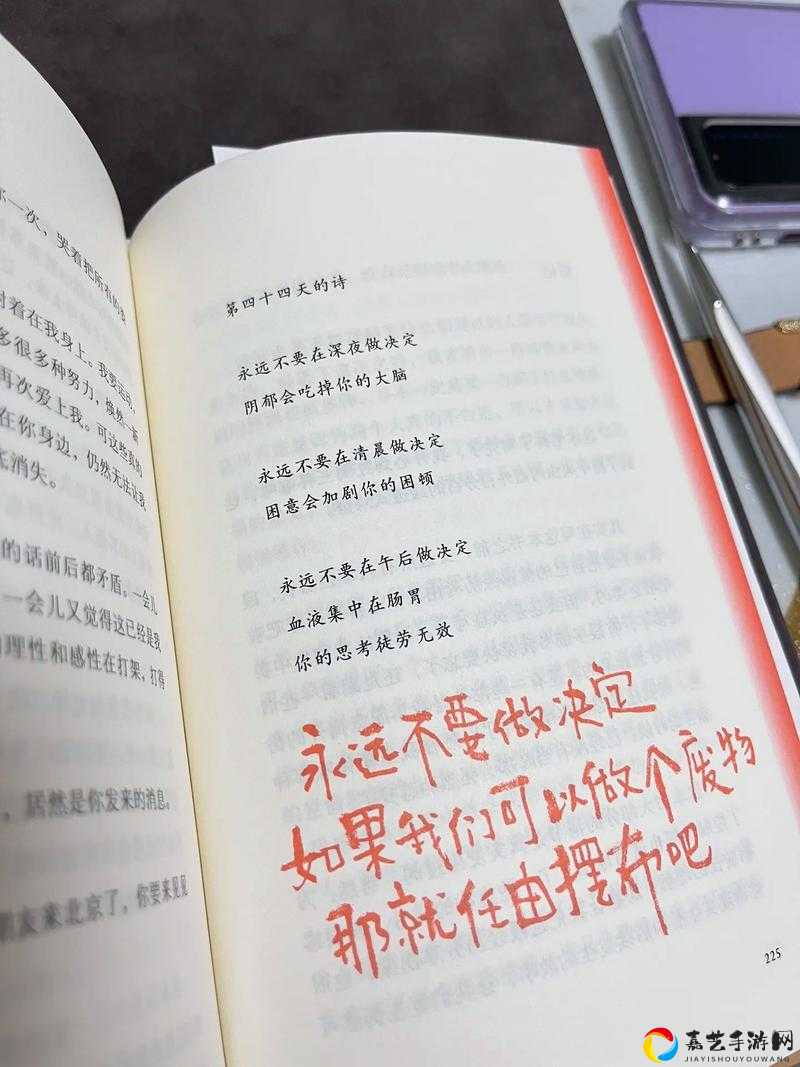 那一次，哭着把所有的
附着在我身上。我要运动，
多很多种努力，焕然一新
再次爱上我。可这些真的
在你身边，仍然无法让我
底消失。
的话前后都矛盾。一会儿
一会儿又觉得这已经是我
的理性和感性在打架，打得
，居然是你发来的消息。
朋友来北京了，你要来见见
第四十四天的诗
永远不要在深夜做决定
阴郁会吃掉你的大脑
永远不要在清晨做决定
困意会加剧你的困顿
永远不要在午后做决定
血液集中在肠胃
你的思考徒劳无效
永远不要做决定
如果我们可以做个废物
那就任由摆布吧
225
嘉艺手游网
JIAYISHOUYOUWANG